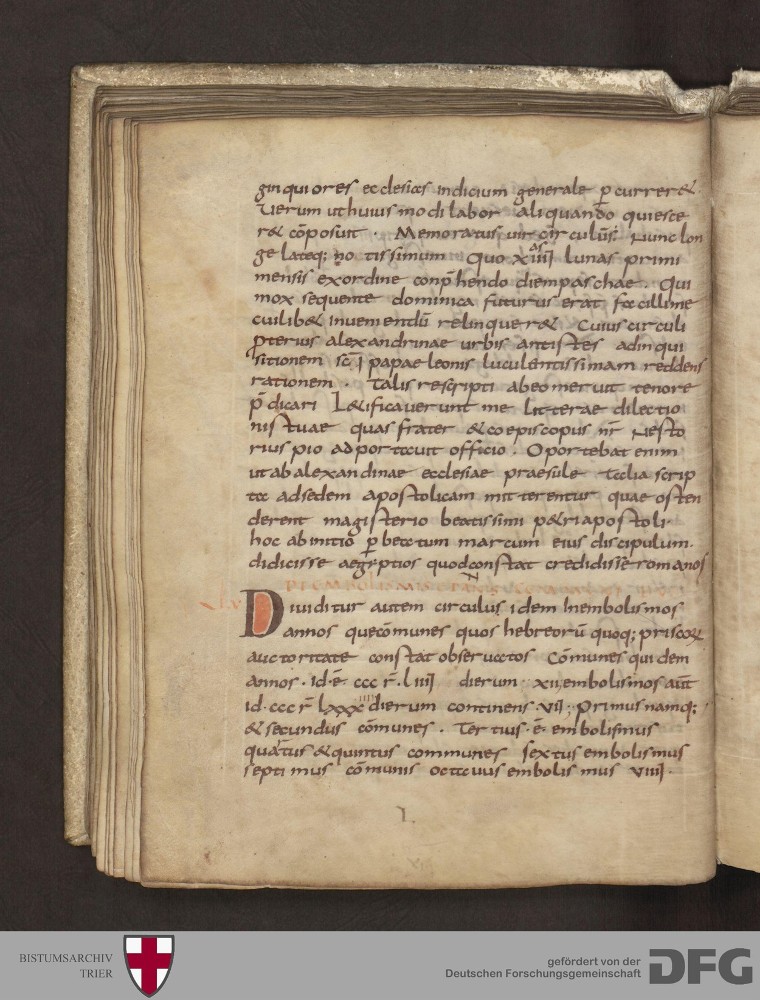 ginquiores ecclesias indicium generale p̄currer&
Verum ut huius modi labor aliquando quiesce
r& cōposuit . Memoratus vir circulus; Nunc lon
ge lateq; no tissimum Quo xiiii as lunas primi
mensis exordine conp̄hendo diempaschae . Qui
mox sequente dominica futurus erat facillime
cuilib& inueniendū relinquer& Cuius circuli
p̱terius alexandrinae urbis antistes adinqui
sitionem sc̄i papae leonis luculentissimam reddens
rationem . Talis rescripti abeo meruit tenore
p̄dicari L&ificauerunt me litterae dilectio
nis tuae quas frater & coepiscopus nr̄ Nesto
rius pio ad portauit officio . Oportebat enim
ut ab alexandinae ecclesiae praesule talia scrip
ta ad sedem apostolicam mitterentur quae osten
derent magisterio beatissimi p&ri apostoli.
hoc ab initio p̱ beatum marcum eius discipulum.
didicisse aegyptios quod constat credidisse romanos
Diuiditur autem circulus idem Inembolismos
annos que cōmunes quos hebreorū quoq; priscorum
auctoritate constat obseruatos Cōmunes quidem
annos . id . ē . ccc r̄ . liiii dierum . xii embolismos aūt
id . ccc r̄ lxxx iiii dierum continens vii ; Primus namq;
& secundus cōmunes . Tertius . ē . embolismus
quartus & quintus communes sextus embolismus
septimus cōmunis octauus embolismus viiii .
BISTUMSARCHIV
TRIER
gefördert von der
Deutschen Forschungsgemeinschaft
DFG